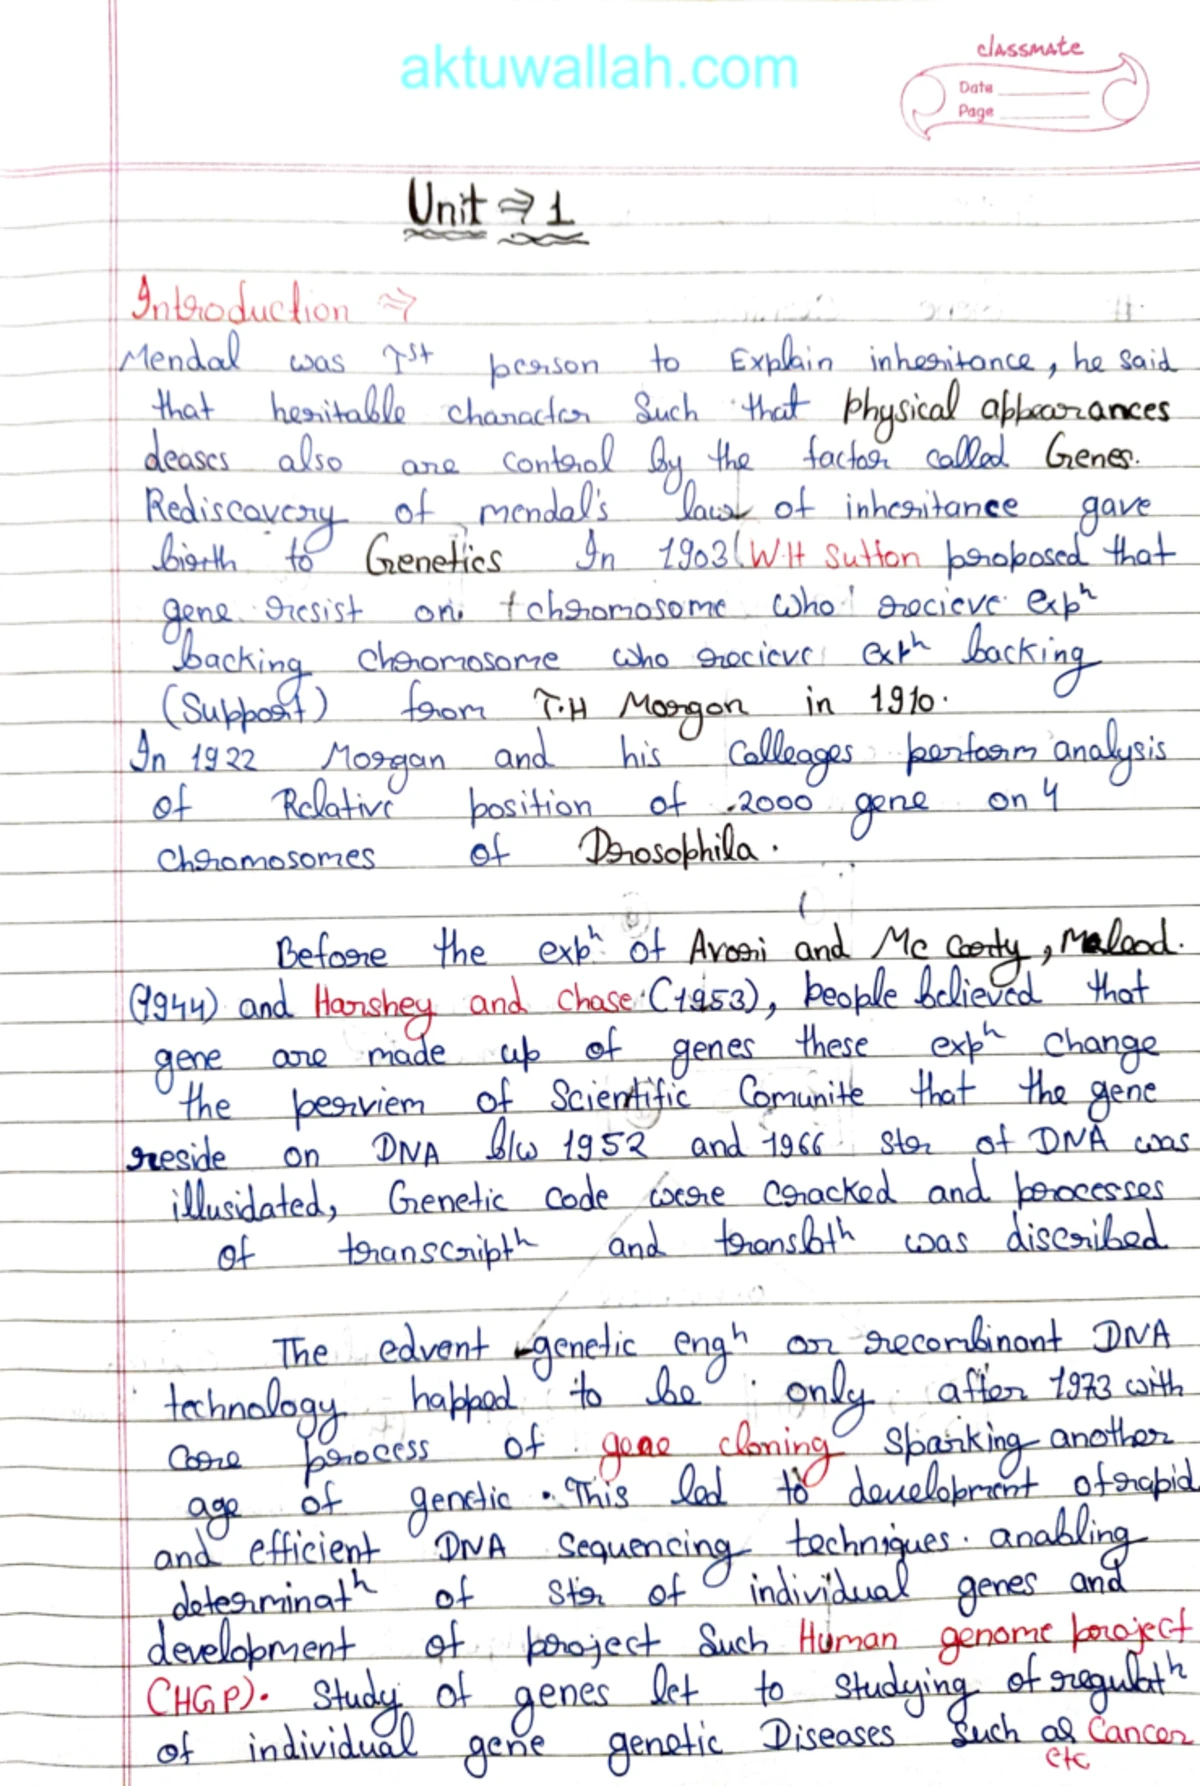 aktuwallah.com
classmate
Date
Page
Unit ⇒ 1
Introduction ⇒
Mendal was 1st person to Explain inheritance, he said
that heritable character Such that physical appearances
deases also are control by the factor called Genes.
Rediscavery of mendal's law of inheritance gave
birth to Genetics In 1903 (W.H Sutton proposed that
gene resist on chromosome who recieve expⁿ
backing chromosome who recieve expⁿ backing
(Support) from T.H Morgan in 1910.
In 1922 Morgan and his Colleages perform analysis
of Relative position of 2000 gene on 4
chromosomes of Drosophila.
Before the expⁿ of Avori and Mc Carty, Maleod.
(1944) and Harshey and chase (1953), people believed that
gene are made up of genes these expⁿ change
the perviem of Scientific Comunite that the gene
reside on DNA b/w 1952 and 1966 str of DNA was
illusidated, Genetic code were cracked and processes
of transcriptⁿ and translatⁿ was discribed
The edvent genetic engⁿ or recombinant DNA
technology happed to be only after 1973 with
core process of gene cloning sparking another
age of genetic. This led to development of rapid
and efficient DNA sequencing techniques. anabling
determinatⁿ of str of individual genes and
development of project such Human genome project
(HGP). Study of genes let to studying of regulatⁿ
of individual gene genetic Diseases such as Cancer
etc